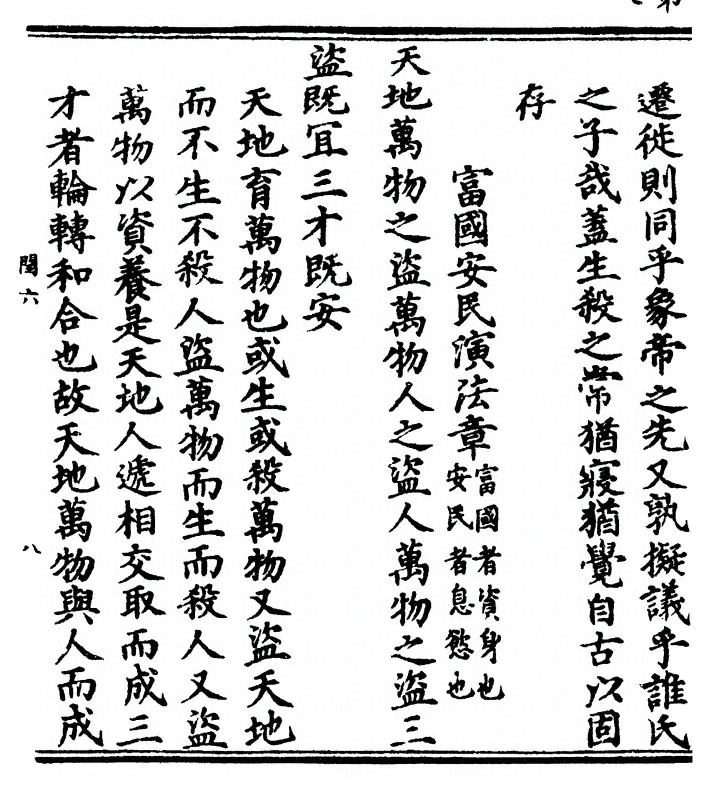 遷徙則同乎象帝之先又孰擬議乎誰氏
之子哉蓋生殺之常猶寢猶覺自古以固
存
富國安民演法章富國者資身也安民者息慾也
天地萬物之盜萬物人之盜人萬物之盜三
盜既冝三才既安
天地育萬物也或生或殺萬物又盜天地
而不生不殺人盜萬物而生而殺人又盜
萬物以資養是天地人遞相交取而成三
才者輪轉和合也故天地萬物與人而成
閏六
八